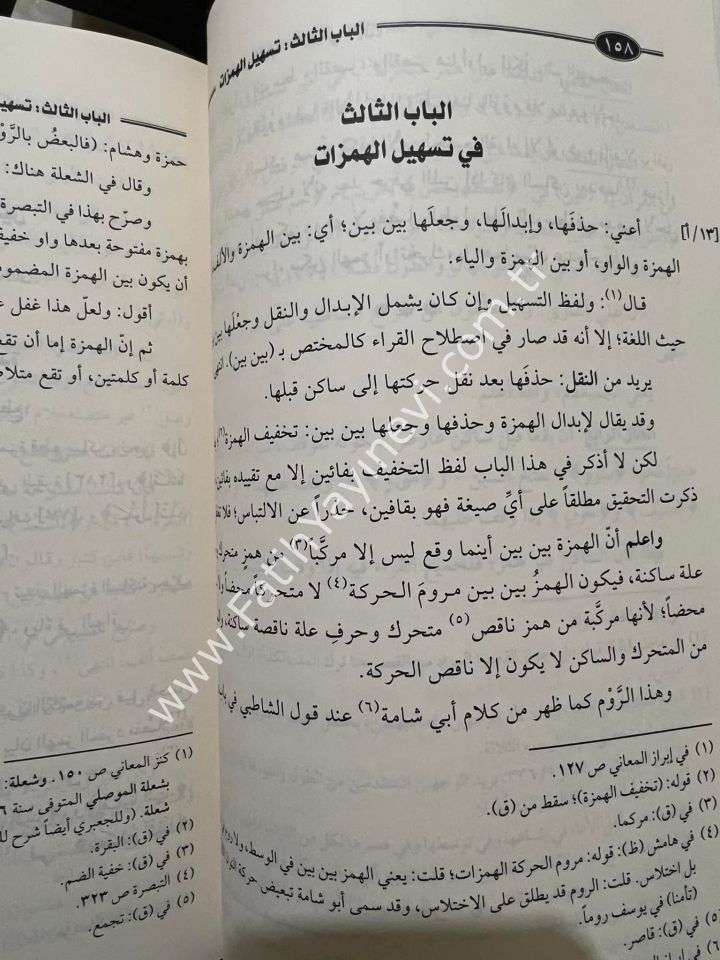 ١٥٨
الباب الثالث: تسهيل الهمزات
الباب الثالث
في تسهيل الهمزات
[١٣/أ]
أعني: حذفَها، وإبدالَها، وجعلَها بين بين؛ أي: بين الهمزة والألف
الهمزة والواو، أو بين الهمزة والياء.
قال(١): ولفظ التسهيل وإن كان يشمل الإبدال والنقل وجعْلَها بين
حيث اللغة؛ إلا أنه قد صار في اصطلاح القراء كالمختص بـ (بين بين).
يريد من النقل: حذفَها بعد نقل حركتها إلى ساكن قبلها.
وقد يقال لإبدال الهمزة وحذفها وجعلها بين بين: تخفيف الهمزة(٢)
لكن لا أذكر في هذا الباب لفظ التخفيف بفائين إلا مع تقييده بفائين
ذكرت التحقيق مطلقاً على أيِّ صيغة فهو بقافين، حذراً عن الالتباس؛
واعلم أنّ الهمزة بين بين أينما وقع ليس إلا مركَّباً(٣) من همز متحرك
علة ساكنة، فيكون الهمزُ بين بين مرومَ الحركة(٤) لا متحركاً محضاً
محضاً؛ لأنها مركَّبة من همز ناقص(٥) متحرك وحرفِ علة ناقصة ساكنة،
من المتحرك والساكن لا يكون إلا ناقص الحركة.
وهذا الرَّوْم كما ظهر من كلام أبي شامة(٦) عند قول الشاطبي في
(١) في إبراز المعاني ص ١٢٧.
(٢) قوله: (تخفيف الهمزة)؛ سقط من (ق).
(٣) في (ق): مركما.
(٤) في هامش (ظ): قوله: مروم الحركة الهمزات؛ قلت: يعني الهمز بين بين في الوسط،
بل اختلاس. قلت: الروم قد يطلق على الاختلاس، وقد سمى أبو شامة تبعيض حركة
(تأمنا) في يوسف روماً.
(٥) في (ق): قاصر.
الباب الثالث:
حمزة وهشام: (فالبعضُ بالرَّوْ
وقال في الشعلة هناك:
وصرّح بهذا في التبصرة
بهمزة مفتوحة بعدها واو خفيفة
أن يكون بين الهمزة المضموم
أقول: ولعلّ هذا غفل
ثم إنّ الهمزة إما أن تقع
كلمة أو كلمتين، أو تقع
(١) كنز المعاني ص ١٥٠. وشعلة:
بشعلة الموصلي المتوفى سنة
شعلة. (وللجعبري أيضاً شرح
(٢) في (ق): البقرة.
(٣) في (ق): خفية الضم.
(٤) التبصرة ص ٣٢٣.
(٥) في (ق): تجمع.
www.FatihYayinevi.com.tr